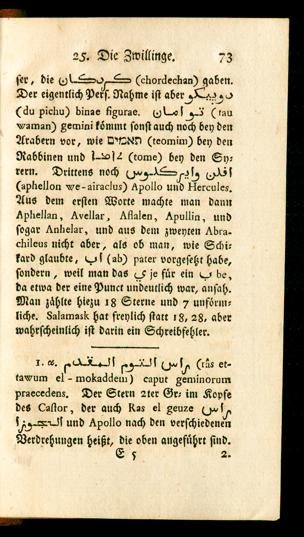 25. Die Zwillinge. 73
ser, die كردكان (chordechan) gaben.
Der eigentlich Pers. Nahme ist aber دوپيكو
(du pichu) binae figurae. توامان (tau
waman) gemini kömmt sonst auch noch bey den
Arabern vor, wie תאמים (teomim) bey den
Rabbinen und (tome) bey den Sy-
rern. Drittens noch افلن وايركلـوس
(aphellon we-airaclus) Apollo und Hercules.
Aus dem ersten Worte machte man dann
Aphellan, Avellar, Aflalen, Apullin, und
sogar Anhelar, und aus dem zweyten Abra-
chileus nicht aber, als ob man, wie Schi-
kard glaubte, اب (ab) pater vorgesetzt habe,
sondern, weil man das ي je für ein ب be,
da etwa der eine Punct undeutlich war, ansah.
Man zählte hiezu 18 Sterne und 7 unförm-
liche. Salamask hat freylich statt 18, 28, aber
wahrscheinlich ist darin ein Schreibfehler.
1. α. راس التوم المقدم (râs et-
tawum el-mokaddem) caput geminorum
praecedens. Der Stern 2ter Gr: im Kopfe
des Castor, der auch Ras el geuze راس
الجوزا und Apollo nach den verschiedenen
Verdrehungen heißt, die oben angeführt sind.
E 5 2.